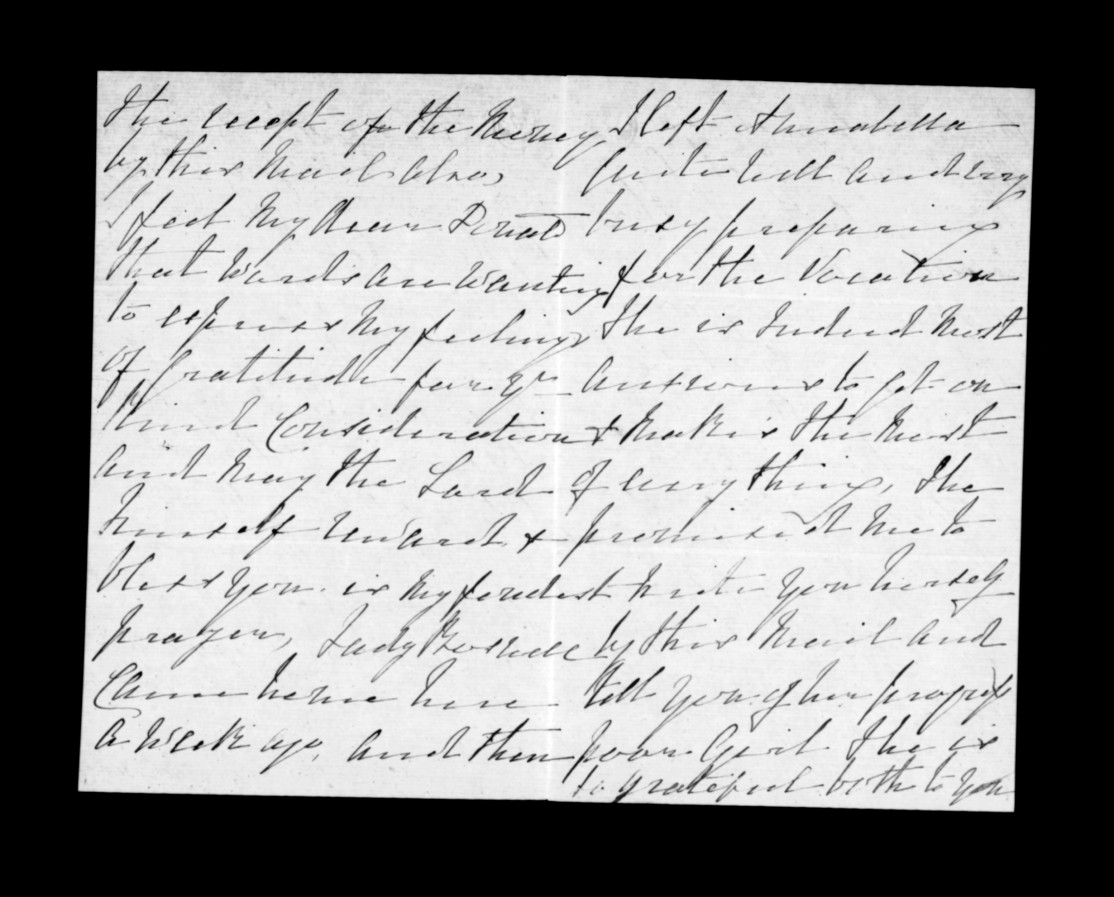 the receipt of the Money
by this Mail also,
I feel My dear Donald
that words are wanting
to express My feelings
of Gratitude for yr
kind Consideration
and May the Lord
himself reward &
bless you. is My fondest
prayer, Lady
Came home here
a Week ago, and then
I left Annabella
quite well and very
busy preparing
for the Vocation
She is indeed Most
anxious to get on
& Makes the Most
of every thing, She
promised Me to
write you herself
by this Mail and
tell you of her progress
poor Girl She is
so grateful both to you